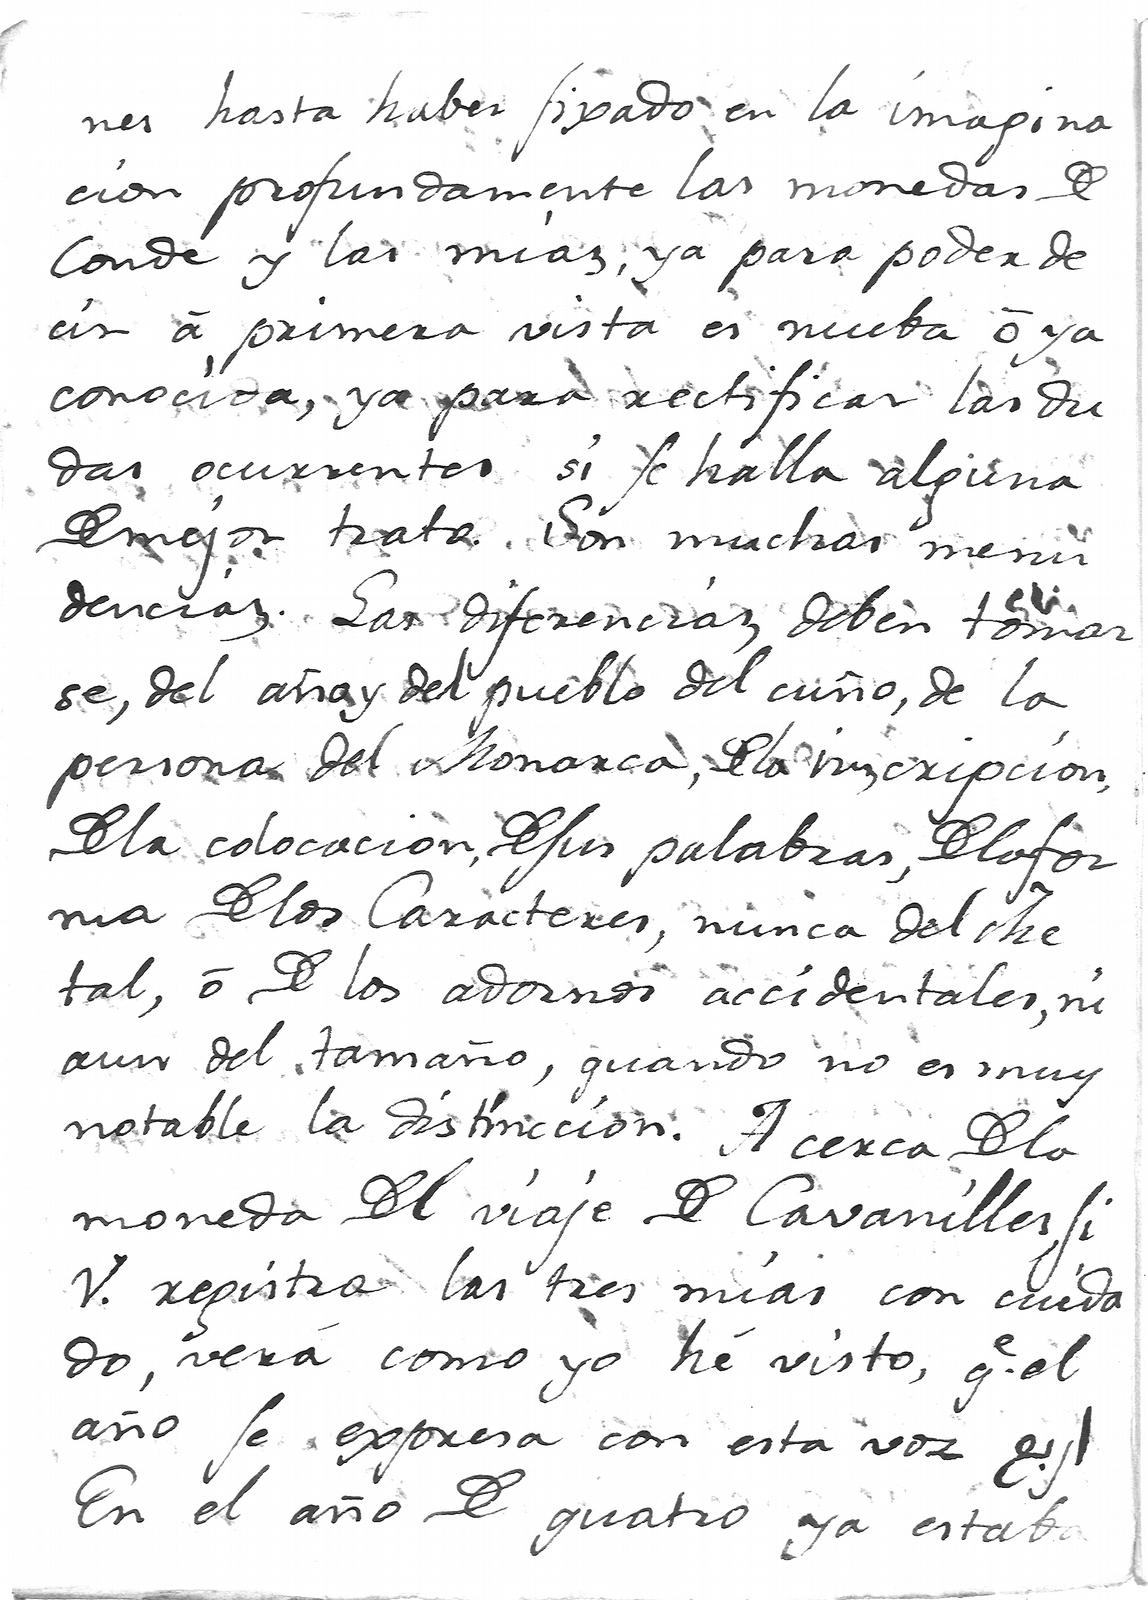 nes hasta haber fixado en la imagina
cion profundamente las monedas De
Conde y las mías, ya para poder de
cir ā primera vista es nueba ō ya
conocida, ya para rectificar las du
das ocurrentes si se halla alguna
De mejor trata. Son muchas menu
dencias. Las diferencias deben tomar
se, del año y del pueblo del cuño, de la
persona del Monarca, De la inscripcion,
De la colocacion, De sus palabras, De la for
ma De los Caracteres, nunca del Me
tal, ō De los adornos accidentales, ni
aun del tamaño, quando no es muy
notable la distincción. A cerca De la
moneda Del viaje De Cavanilles, si
V. registra las tres mías con cuida
do, verá como yo hé visto, q.e el
año se expresa con esta voz
En el año De quatro ya estaba